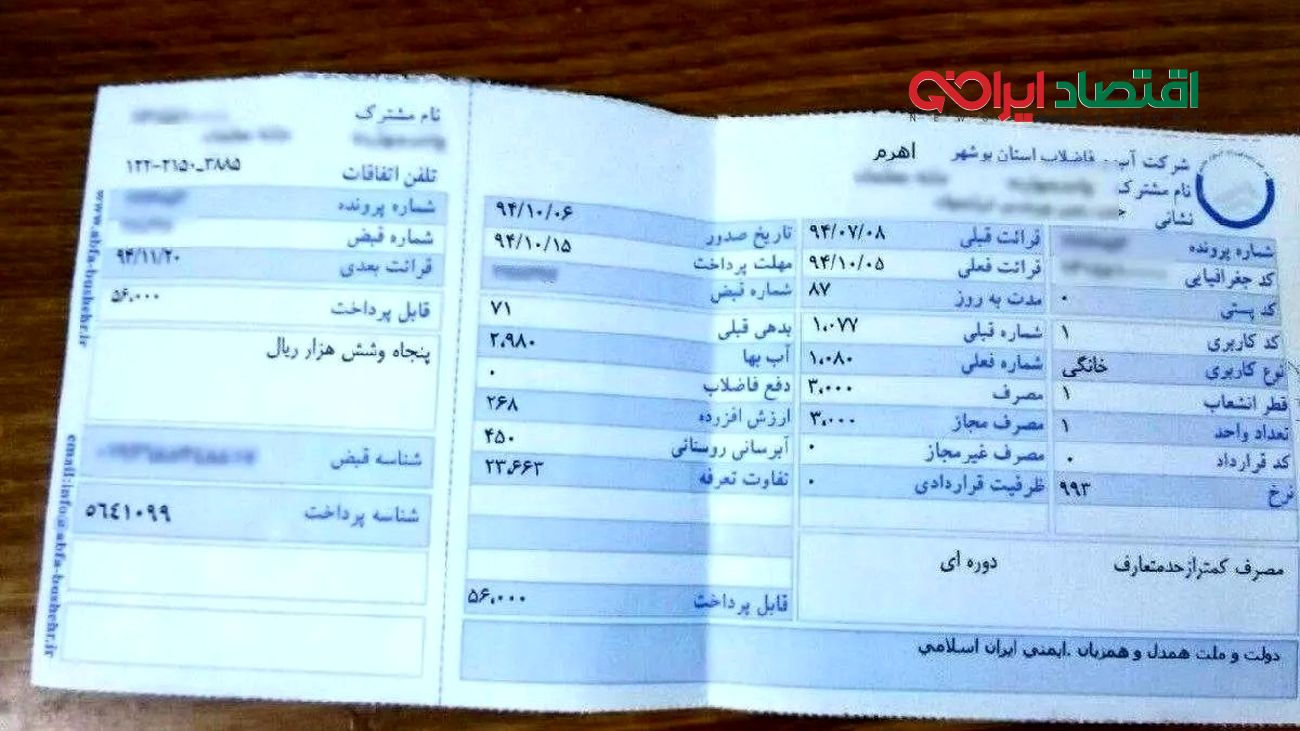 اقتصاد ایرانی
شرکت آب و فاضلاب استان بوشهر اهرم
نام مشترک
نشانی
شماره پرونده
کد جغرافیایی
کد پستی ۰
کد کاربری ۱
نوع کاربری خانگی
قطر انشعاب ۱
تعداد واحد ۱
کد قرارداد ۰
نرخ ۹۹۳
قرائت قبلی ۹۴/۰۷/۰۸
قرائت فعلی ۹۴/۱۰/۰۵
مدت به روز ۸۷
شماره قبلی ۱،۰۷۷
شماره فعلی ۱،۰۸۰
مصرف ۳،۰۰۰
مصرف مجاز ۳،۰۰۰
مصرف غیر مجاز ۰
ظرفیت قراردادی ۰
تاریخ صدور ۹۴/۱۰/۰۶
مهلت پرداخت ۹۴/۱۰/۱۵
شماره قبض
بدهی قبلی ۷۱
آب بها ۲،۹۸۰
دفع فاضلاب ۰
ارزش افزوده ۲۶۸
آبرسانی روستائی ۴۵۰
تفاوت تعرفه ۲۳،۶۶۳
قابل پرداخت ۵۶،۰۰۰
مصرف کمتر از حد متعارف دوره ای
دولت و ملت همدل و همزبان .ایمنی ایران اسلامی
نام مشترک
تلفن اتفاقات ۱۲۲-۲۱۵۰_۳۸۸۵
شماره پرونده
شماره قبض
قرائت بعدی ۹۴/۱۱/۲۰
قابل پرداخت ۵۶،۰۰۰
پنجاه وشش هزار ریال
شناسه قبض
شناسه پرداخت ۵۶۴۱۰۹۹
www.abfa-bushehr.ir
email:info@abfa-bushehr.ir